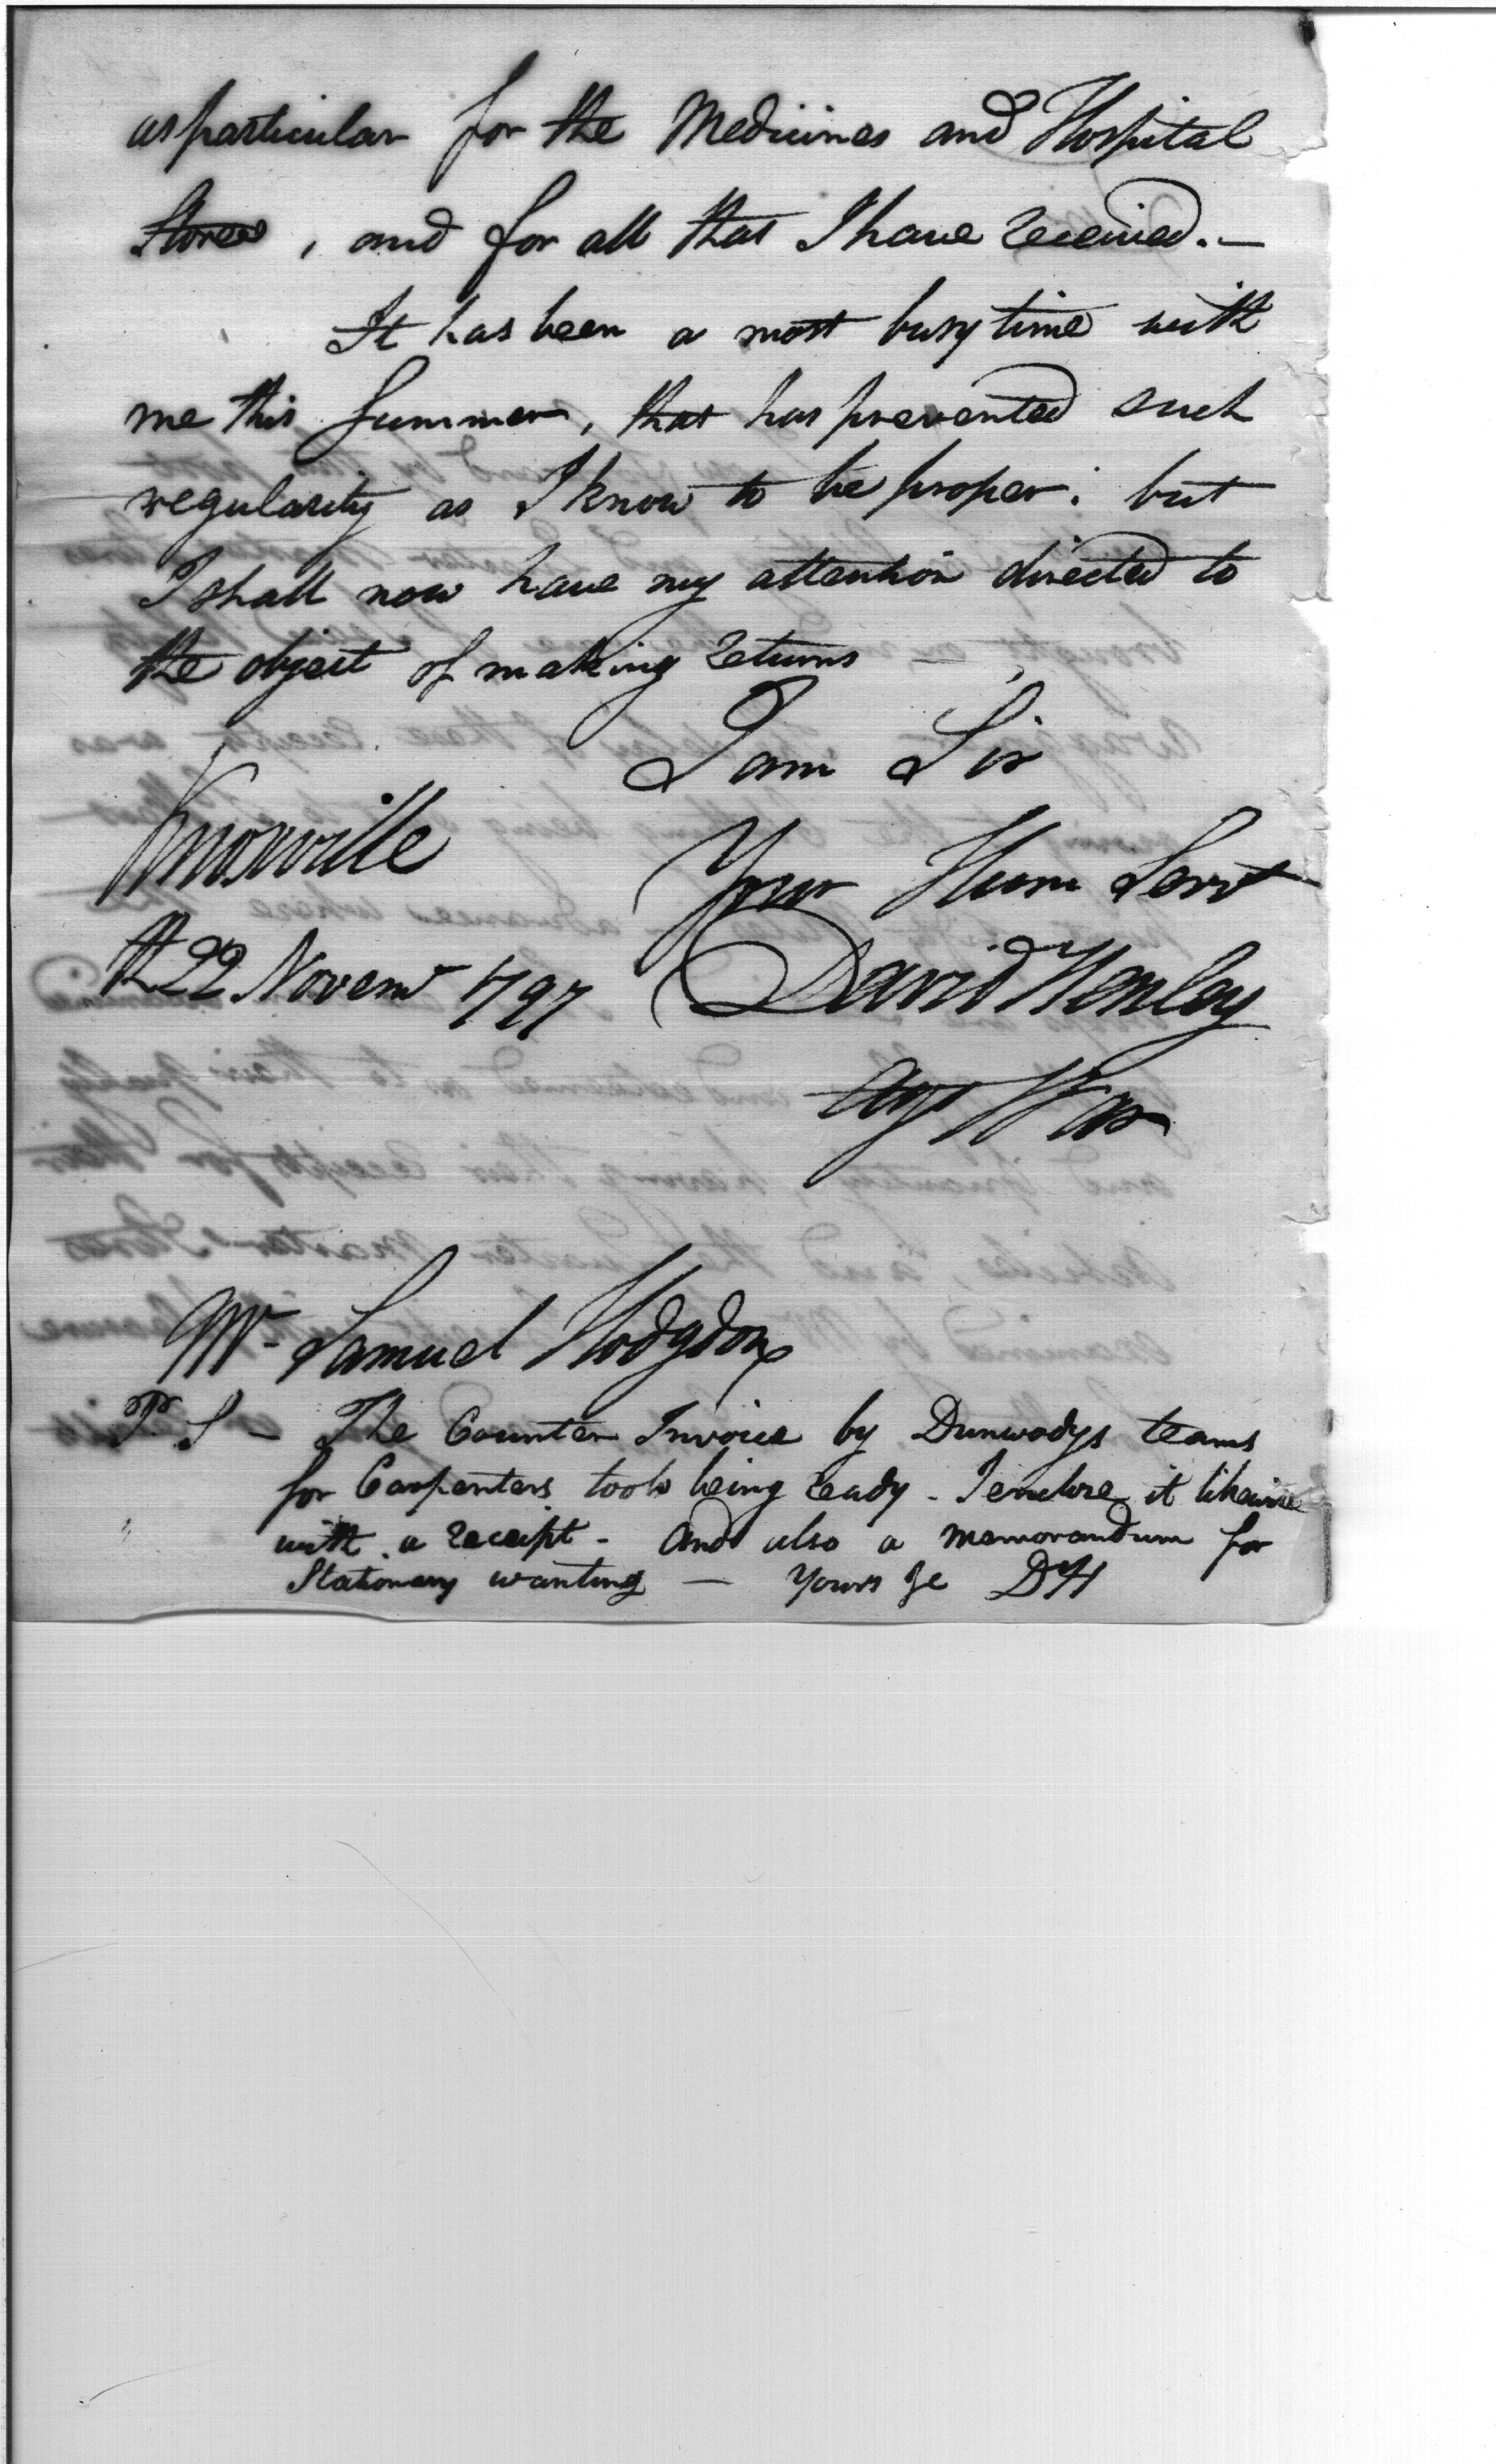 as particular for the Medicines and Hospital
Stores, and for all that I have received. —
It has been a most busy time with
me this Summer, that has prevented such
regularity as I know to be proper: but
I shall now have my attention directed to
the object of making returns —
I am Sir
Knoxville Your Hum Servt
the 22 Novemr 1797 David Henley
Agt War
Mr Samuel Hodgdon
P. S — The Counter Invoice by Dunwodys teams
for Carpenters tools being ready - I enclose it likewise
with a receipt - And also a memorandum for
Stationery wanting — Yours &c DH